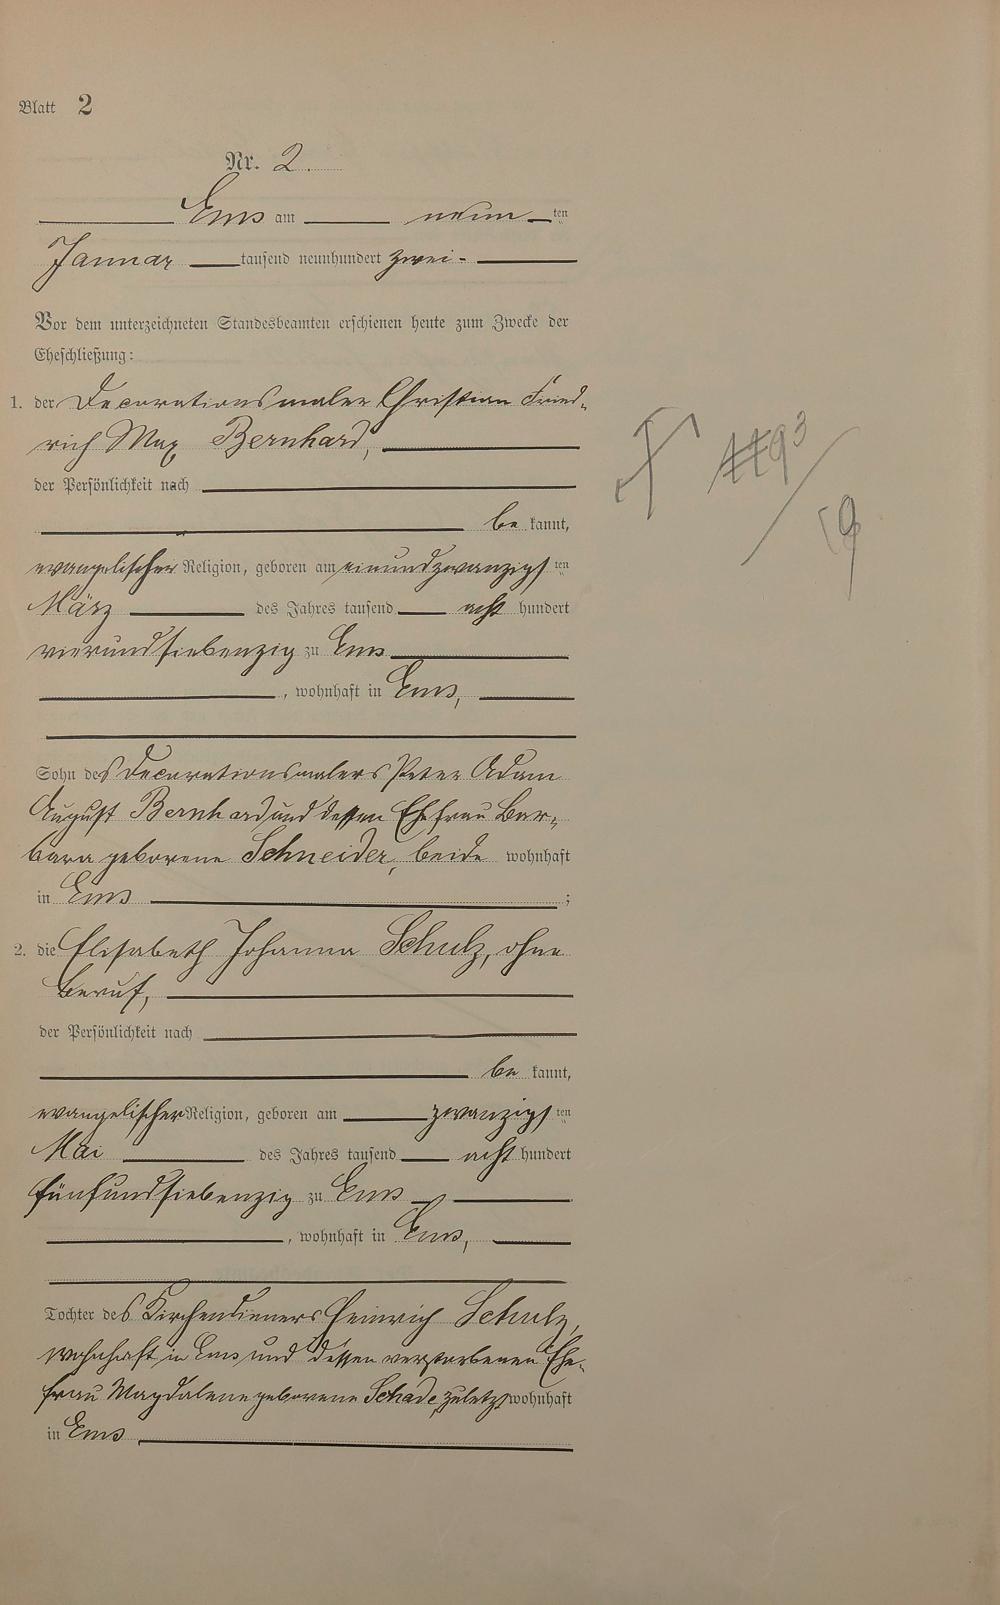 Blatt 2
Nr. 2.
Ems am neun ten
Januar tausend neunhundert zwei
Vor dem unterzeichneten Standesbeamten erschienen heute zum Zwecke der
Eheschließung:
1. der Decorationsmaler Christian Fried-
rich Max Bernhard,
der Persönlichkeit nach
be kannt,
evangelischer Religion, geboren am einundzwanzigs ten
März des Jahres tausend acht hundert
vierundsiebenzig zu Ems
, wohnhaft in Ems,
Sohn des Decorationsmalers Peter Adam
August Bernhard und dessen Ehefrau Bar-
bara geborene Schneider, beide wohnhaft
in Ems ;
2. die Elisabeth Johanna Schulz, ohne
Beruf,
der Persönlichkeit nach
be kannt,
evangelischer Religion, geboren am zwanzigs ten
Mai des Jahres tausend acht hundert
fünfundsiebenzig zu Ems
, wohnhaft in Ems,
Tochter des Kirchendieners Heinrich Schulz,
wohnhaft in Ems und dessen verstorbenen Ehe-
frau Magdalene geborene Schade, zuletzt wohnhaft
in Ems